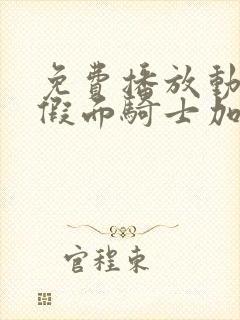 免費播放動
假面騎士加
官程東